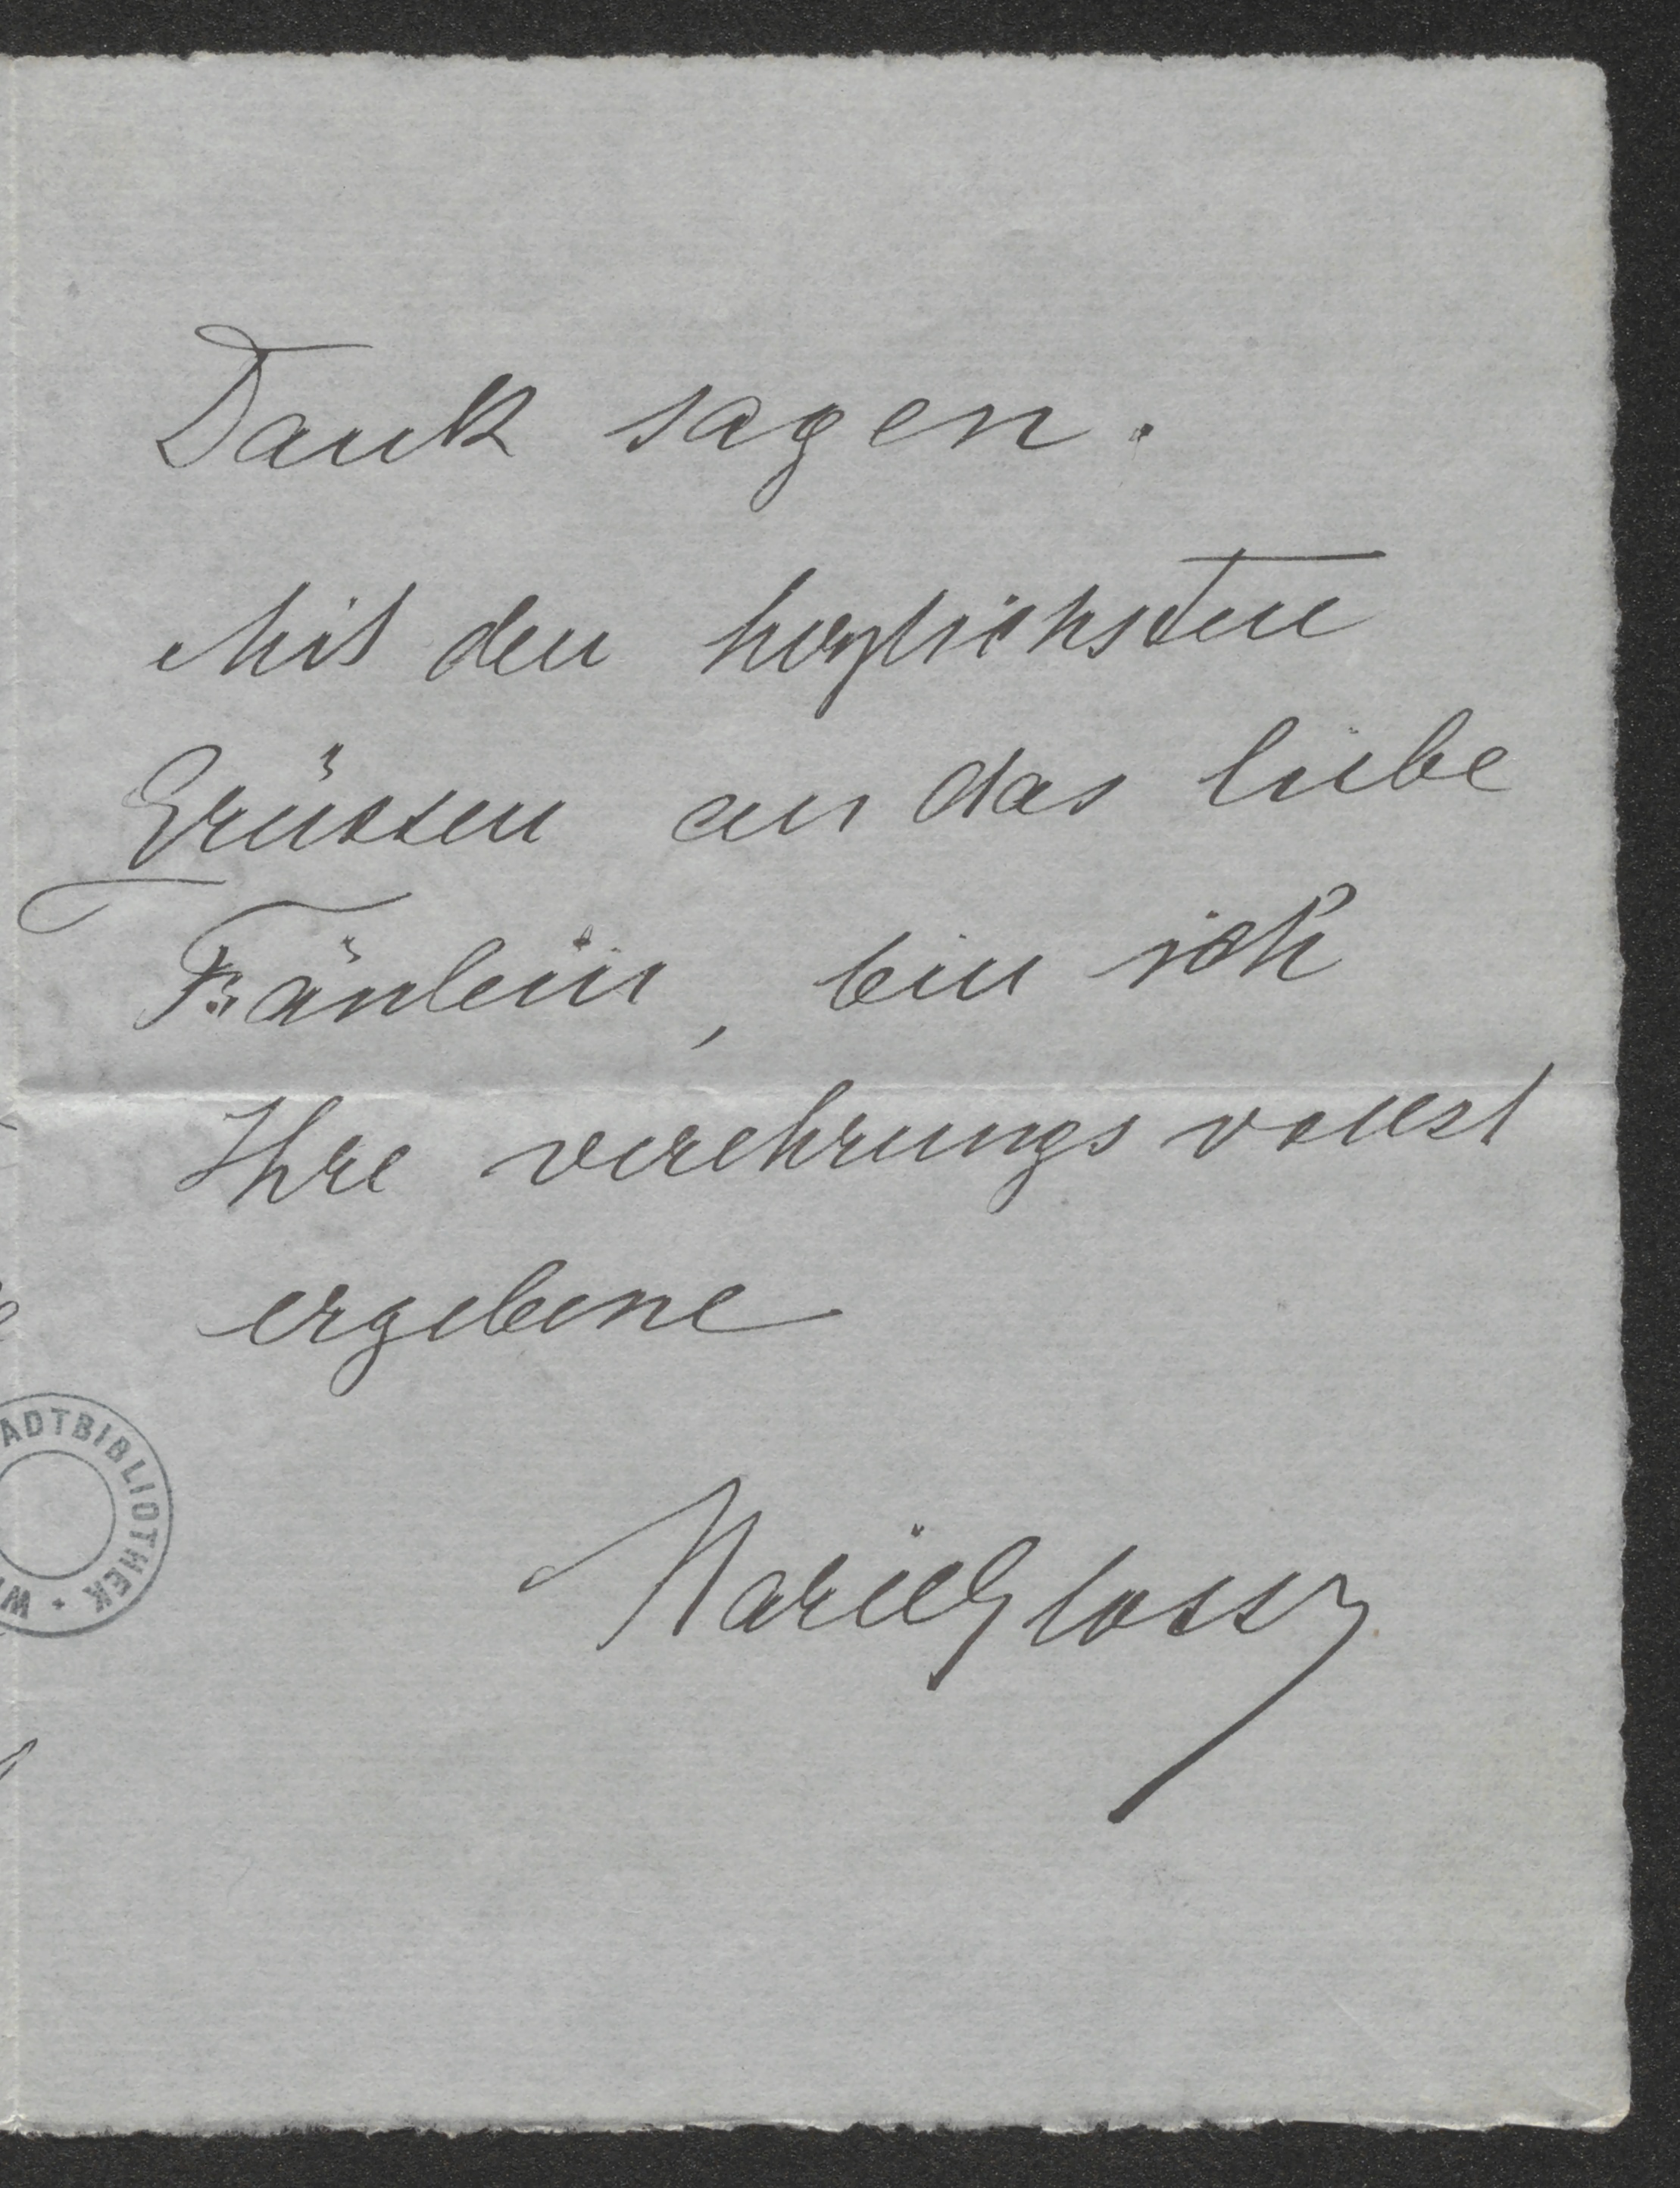 Dank sagen.
Mit den herzlichsten
Grüssen an das liebe
Fräulein, bin ich
Ihre verehrungsvollst
ergebene
ADTBIBLIOTHEK • WI
Marie Glossy